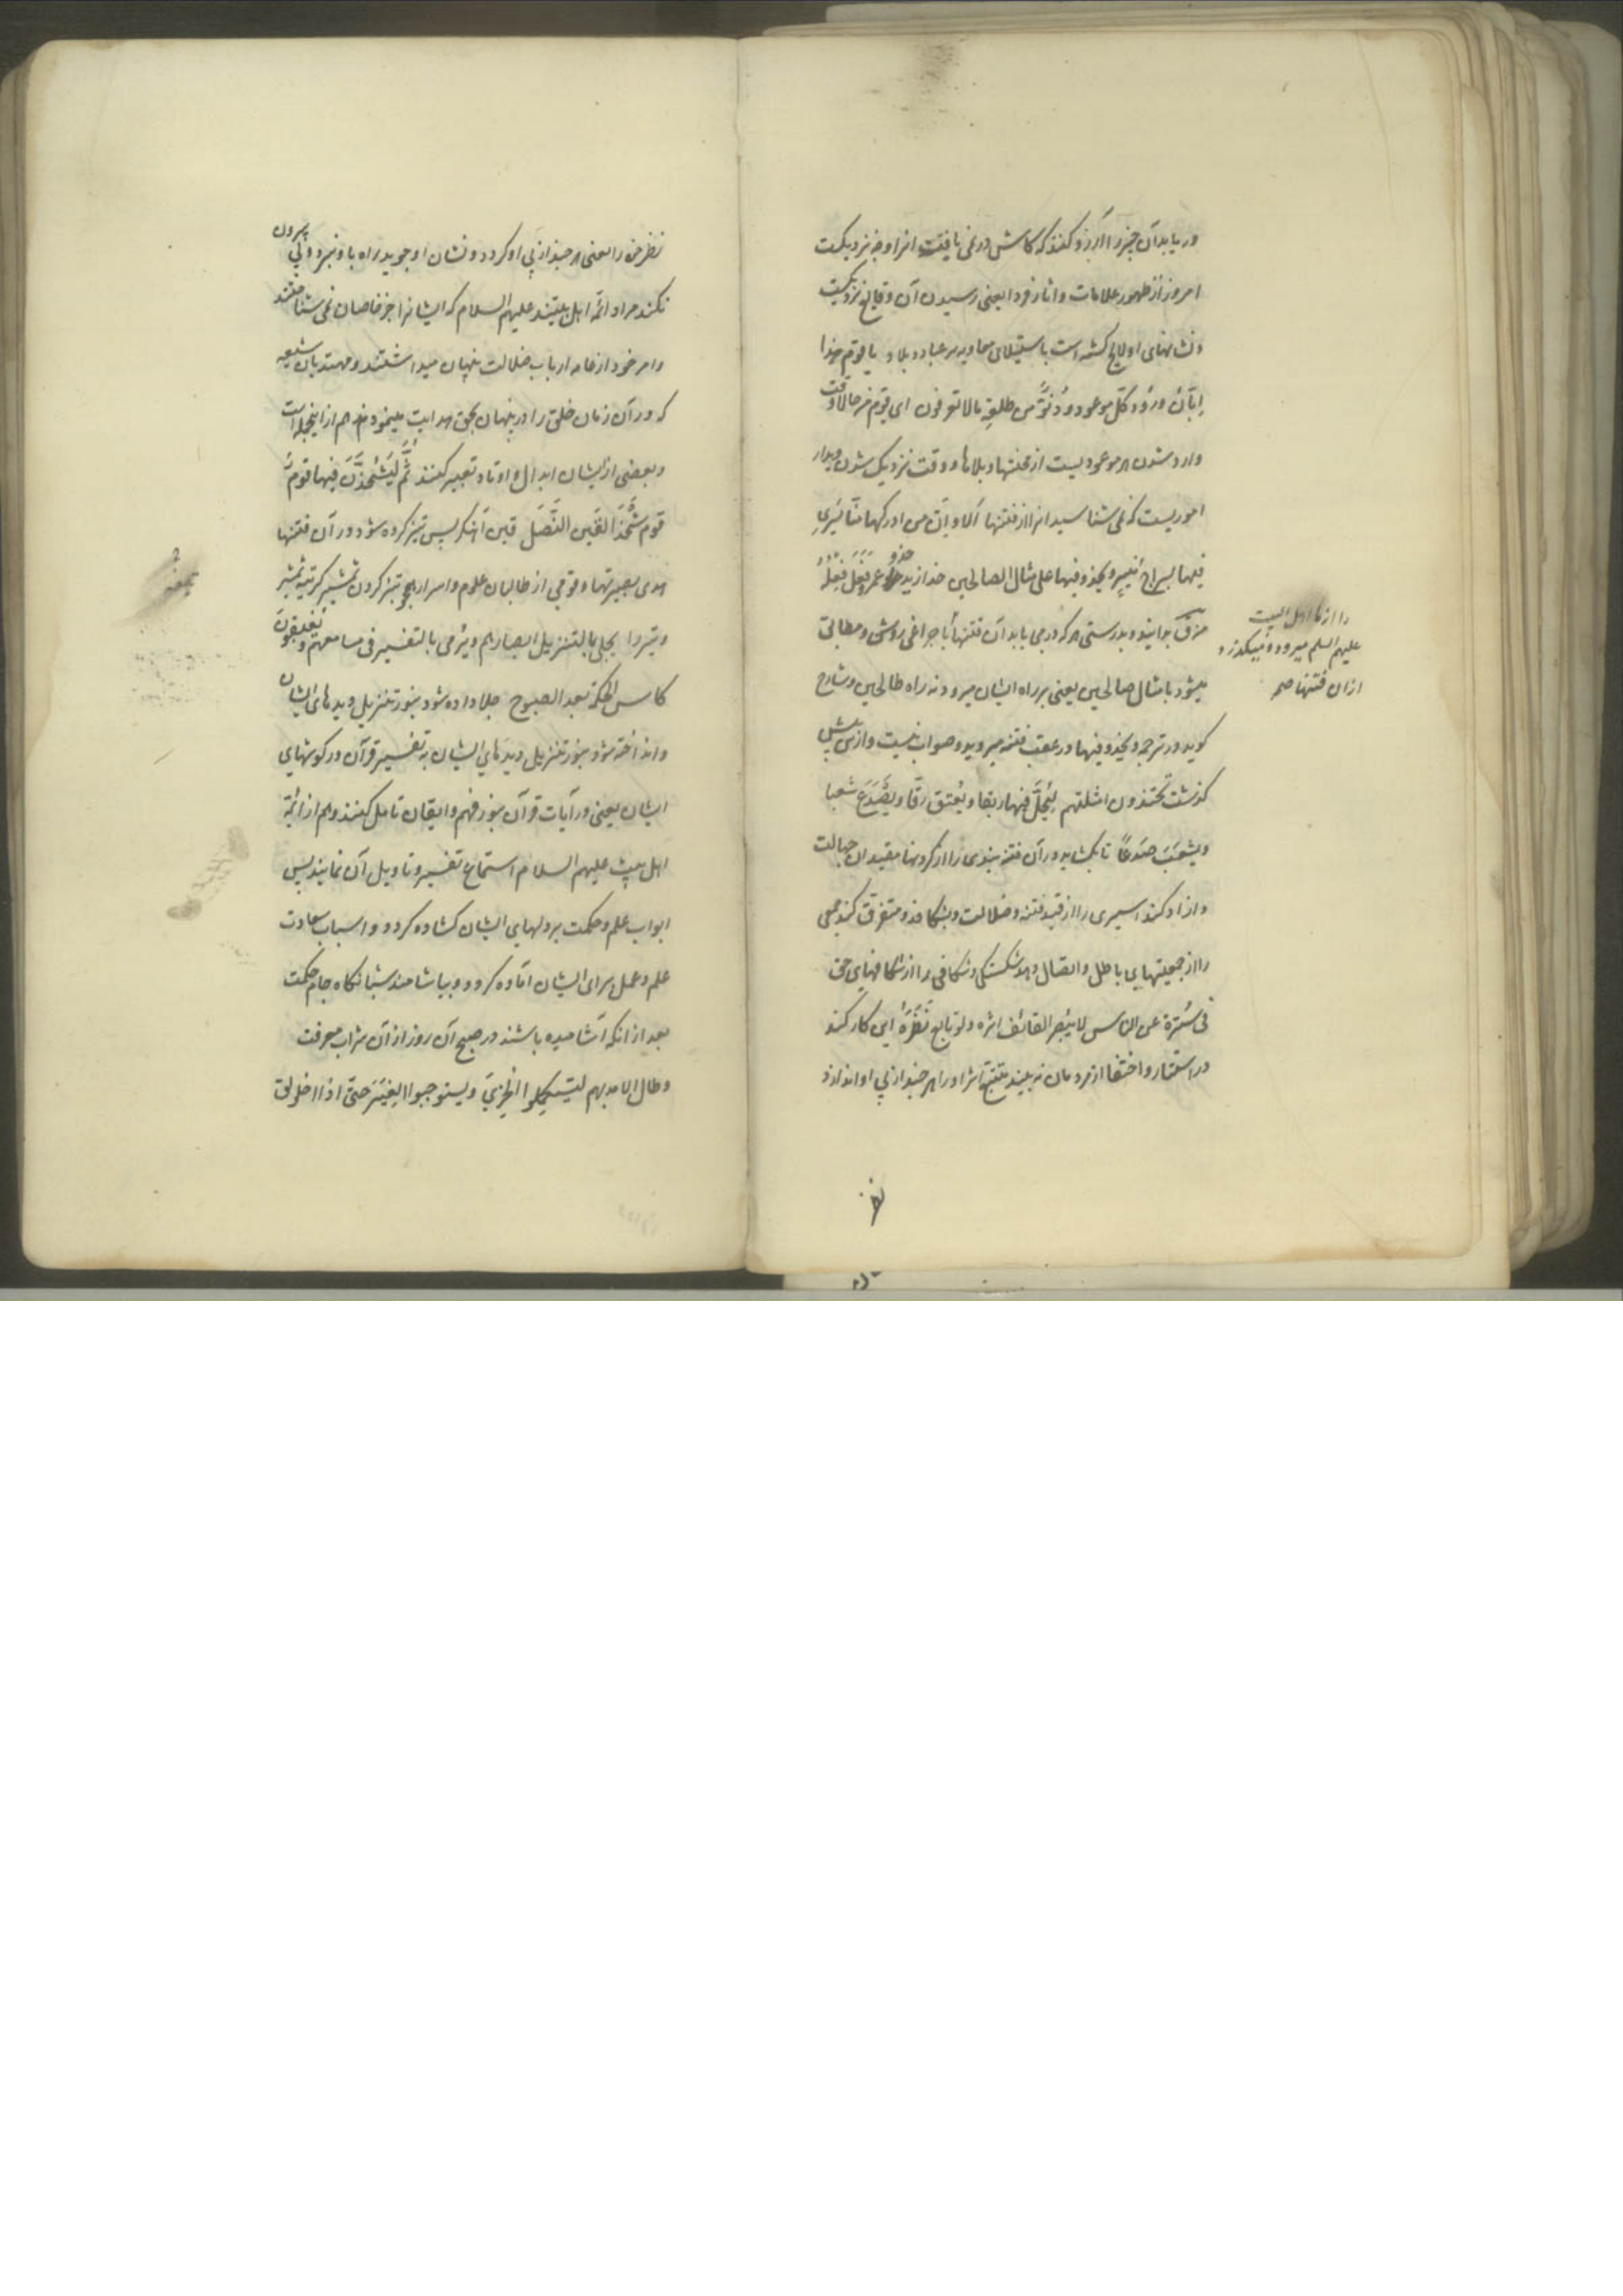 دریابد آن چیز را آرزو کنند که کاش در نمی یافت انرا و چه نزدیکست
امروز از ظهور علامات و اثار فردا یعنی رسیدن آن وقایع نزدیکست
و نشانهای او لایح کشته است باستیلای معاویه بر عباد و بلاد یا قوم هذا
إبّانُ ورود کل موعود و دُنُوٍّ من طلعةِ ما لا تعرفون ای قوم من حالا وقت
وارد شدن هر موعودیست از محنتها و بلاها و وقت نزدیک شدن دیدار
امور یست که نمی شناسید انرا از فتنها ألا و إنّ من ادرکها منّا یَسْری
فیها بسراج مُنیرٍ و یحذو فیها علی مثال الصالحین حذا زید حذو عمرو فَعَلَ فِعْلَهُ
بدانید و بدرستی هر که در می یابد آن فتنها با چراغی روشن و مطابق
میشود با مثال صالحین یعنی بر راه ایشان میرود نه راه طالحین و شارح
کوید در ترجمه و یحذو فیها در عقب فتنه میرود و صواب نیست و از پیش
کذشت تحتذون امثلتهم لِیَحُلَّ فیها ربقا و یُعتق رقّا و یَصْدَعَ شعبا
و یشعَبَ صَدعًا تا بکشاید در آن فتنه بندی را از کردنها مقیدان جهالت
و ازاد کند اسیری را از قید فتنه و ضلالت و بشکافد و متفرق کند جمعی
را از جمعیتهای باطل و اتصال دهد شکستکی و شکافی را از شکافهای حق
فی سُترة عن الناس لا یُبصر القائف اثره ولو تابع نَظَرَهُ این کار کند
در استتار و اختفا از مردمان نه بیند متتبع اثر او را هر چند از پی او اندازد
را از ما اهل البیت
علیهم السلم میرود و میکذرد
ازان فتنها صح
نظر
نظر خود را یعنی هر چند از پی او کردد و نشان او جوید راه باو نبرد و پی بیرون
نکند مراد ائمه اهل بیتند علیهم السلام که ایشانرا جز خاصان نمی شناختند
و امر خود از عامه ارباب ضلالت پنهان میداشتند و مهتدیان شیعه
که در آن زمان خلق را در پنهان بحق هدایت مینمودند هم از اینجمله است
و بعضی از ایشان ابدال و اوتاد تعبیر کنند ثُمَّ لَیُشْحَذَنَّ فیها قومٌ
قوم شَحْذَ القَین النَّصْلَ قین آهنکر پس تیز کرده شود در آن فتنها
هدی بصیرتها و قومی از طالبان علوم و اسرار همچو تیز کردن شمشیر کر تیغه شمشیر
و تیر را یجلی بالتنزیل ابصارهم و یُرمی بالتفسیر فی مسامعهم و یُغبقون
کاس الحکمة بعد الصبوح جلا داده شود بنور تنزیل دیدهای ایشان
و انداخته شود بنور تنزیل دیدهای ایشان به تفسیر قرآن در کوشهای
ایشان یعنی در آیات قرآن بنور فهم و ایقان تامل کنند و هم از ائمه
اهل بیت علیهم السلام استماع تفسیر و تاویل آن نمایند پس
ابواب علم و حکمت بر دلهای ایشان کشاده کردد و اسباب سعادت
علم و عمل برای ایشان آماده کردد و بیاشامند شبانکاه جام حکمت
بعد از انکه آشامیده باشند در صبح آن روز از آن شراب معرفت
و طال الامد بهم لیستکملوا الخزی و یستوجبوا الغِیَر حتّی اذا اخلولق